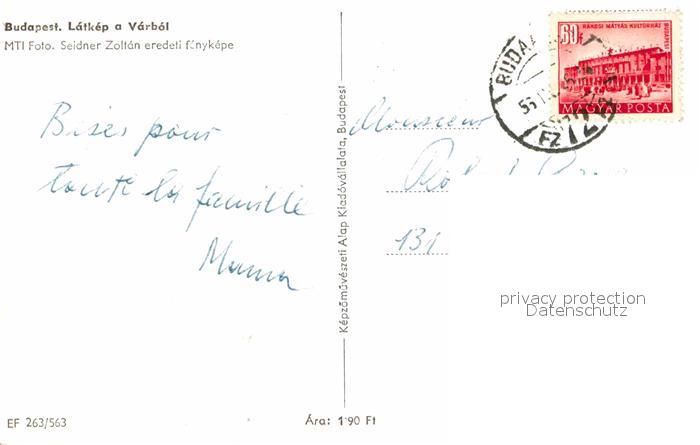 Budapest. Látkép a Várból
MTI Foto. Seidner Zoltán eredeti fényképe
60
RÁKOSI MÁTYÁS KULTÚRHÁZ
BUDAPEST
MAGYAR POSTA
BUDAPEST
72
Bises pour
toute la famille
Mama
Képzőművészeti Alap Kiadóvállalata, Budapest
Monsieur
131
privacy protection
Datenschutz
EF 263/563
Ára: 1·90 Ft